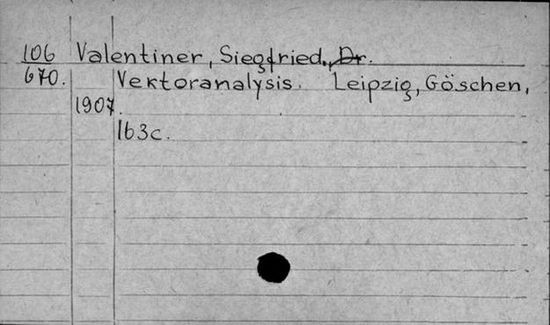 106 Valentiner, Siegfried., Dr.
670. Vektoranalysis. Leipzig, Göschen,
1907.
163c.